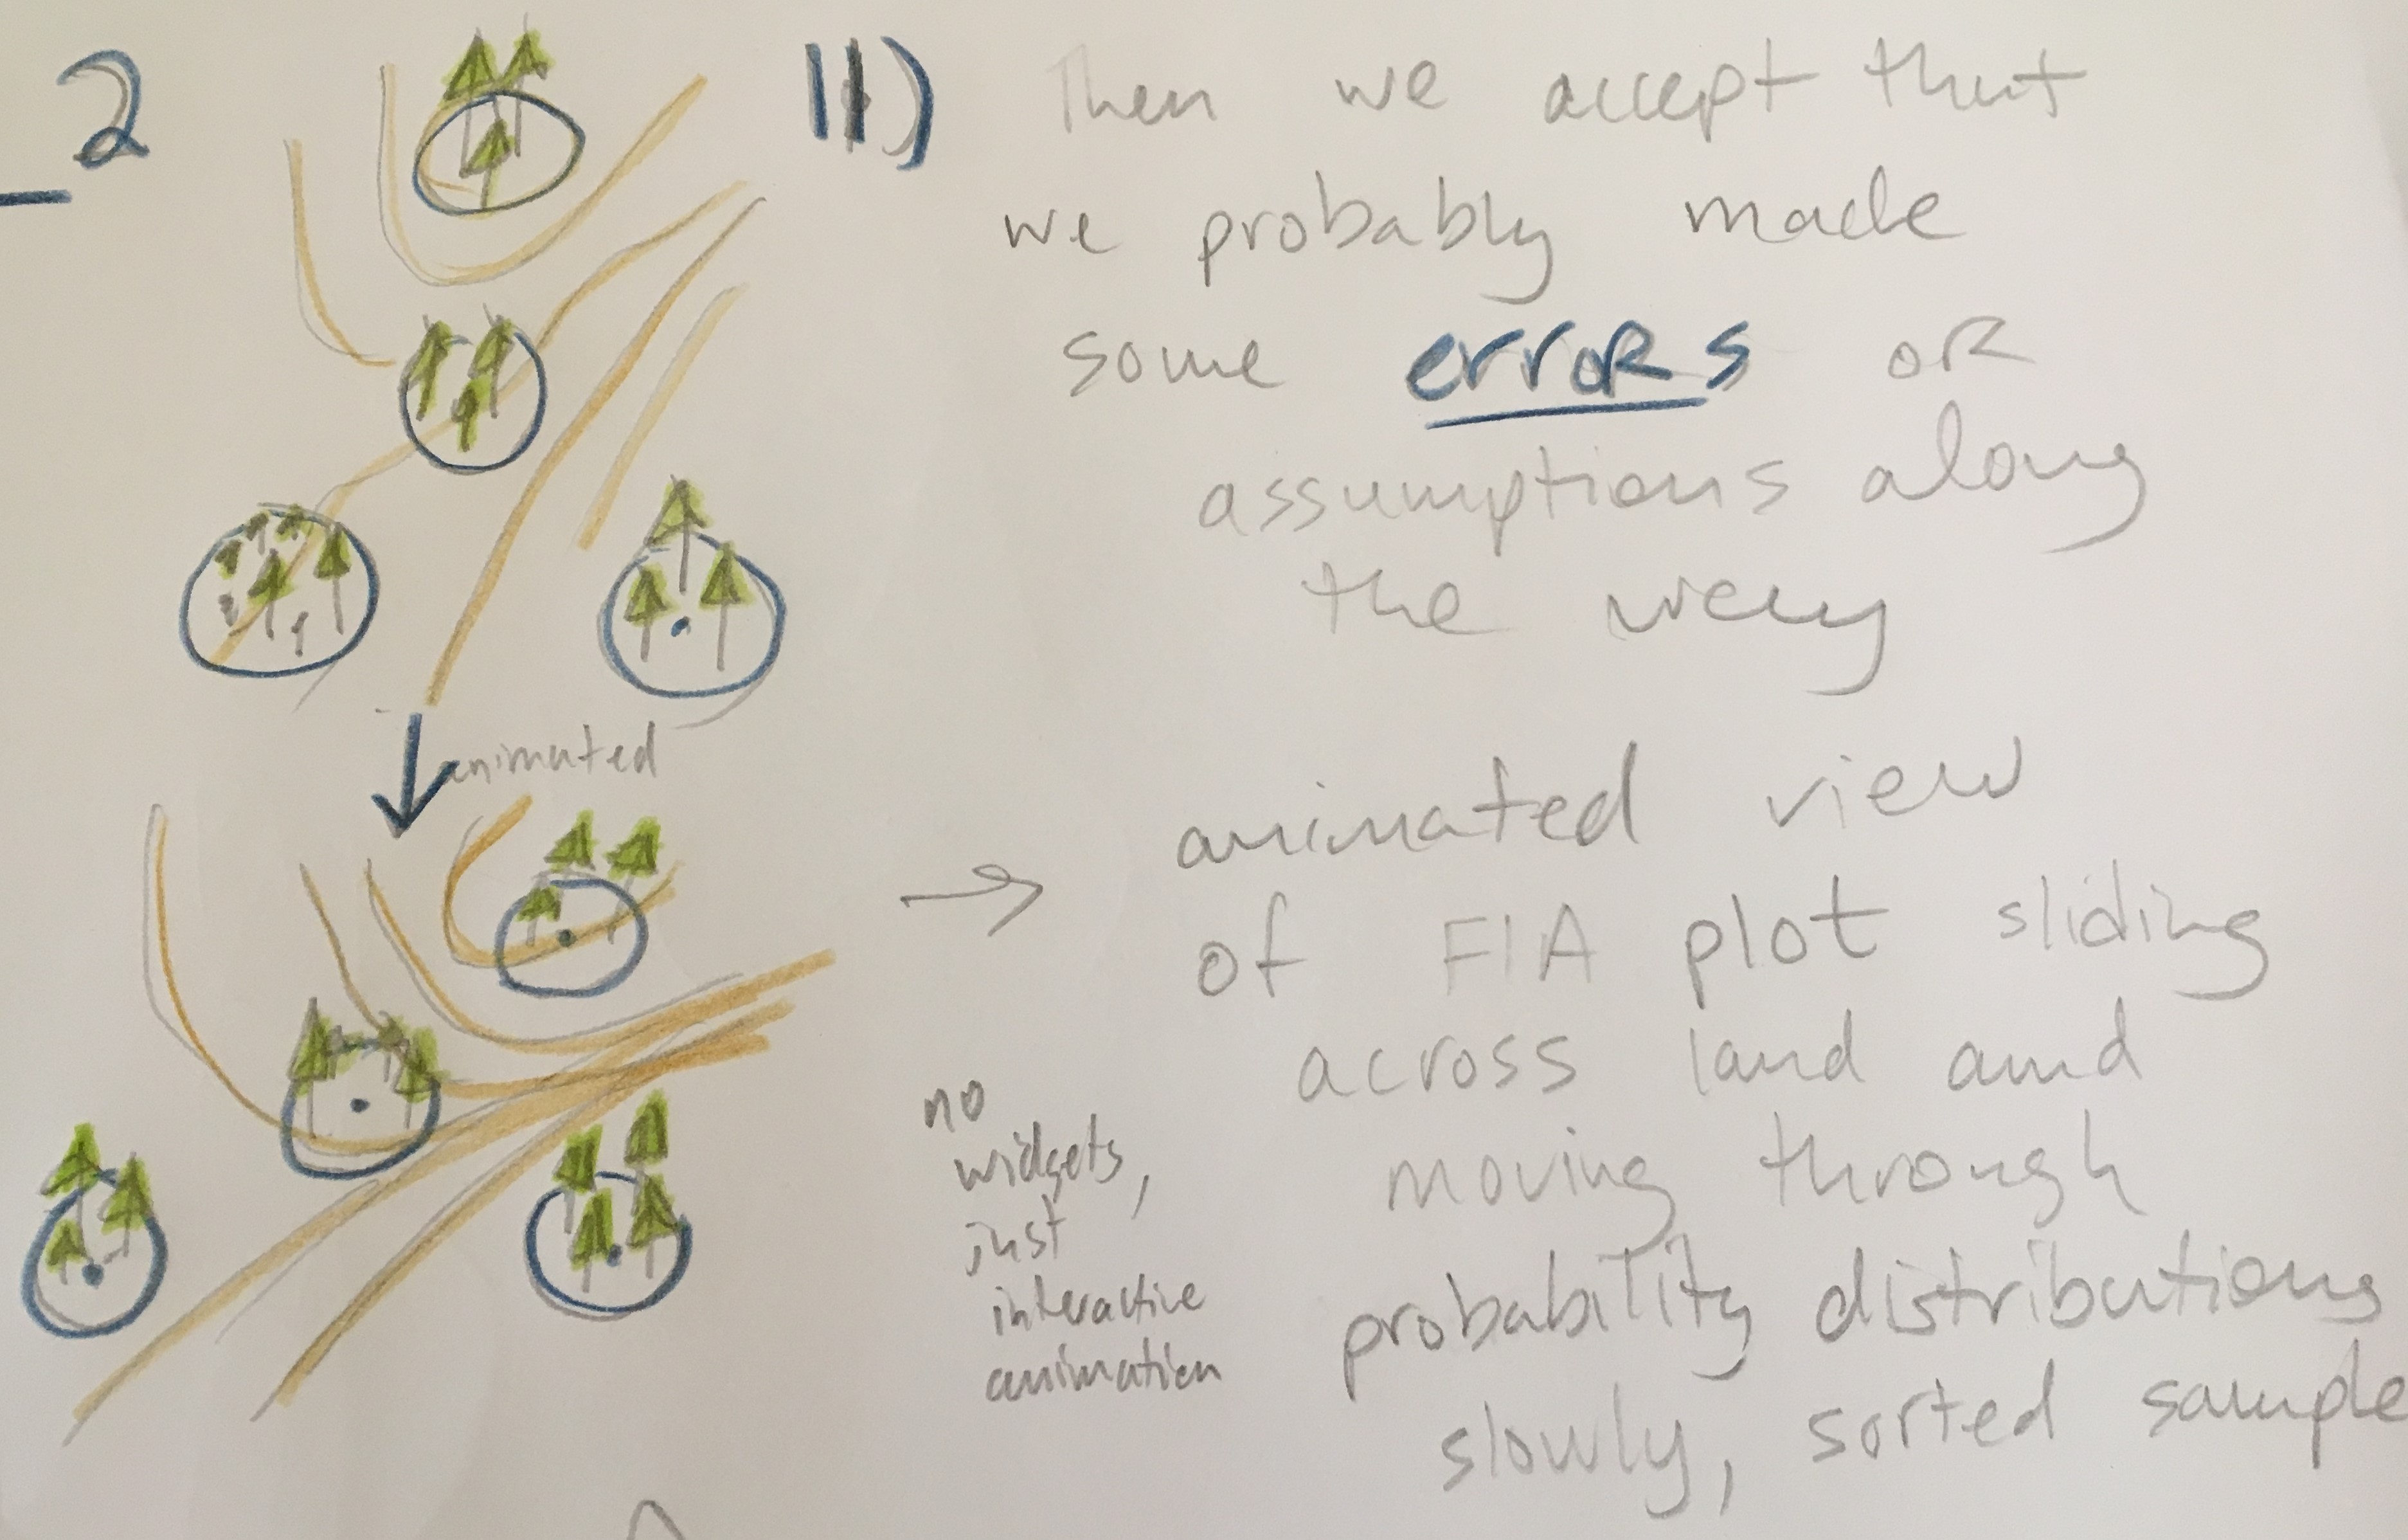 2
11) Then we accept that
we probably made
some errors or
assumptions along
the way
animated
→ animated view
of FIA plot sliding
across land and
moving through
probability distributions
slowly, sorted sample
no
widgets,
just
interactive
animation